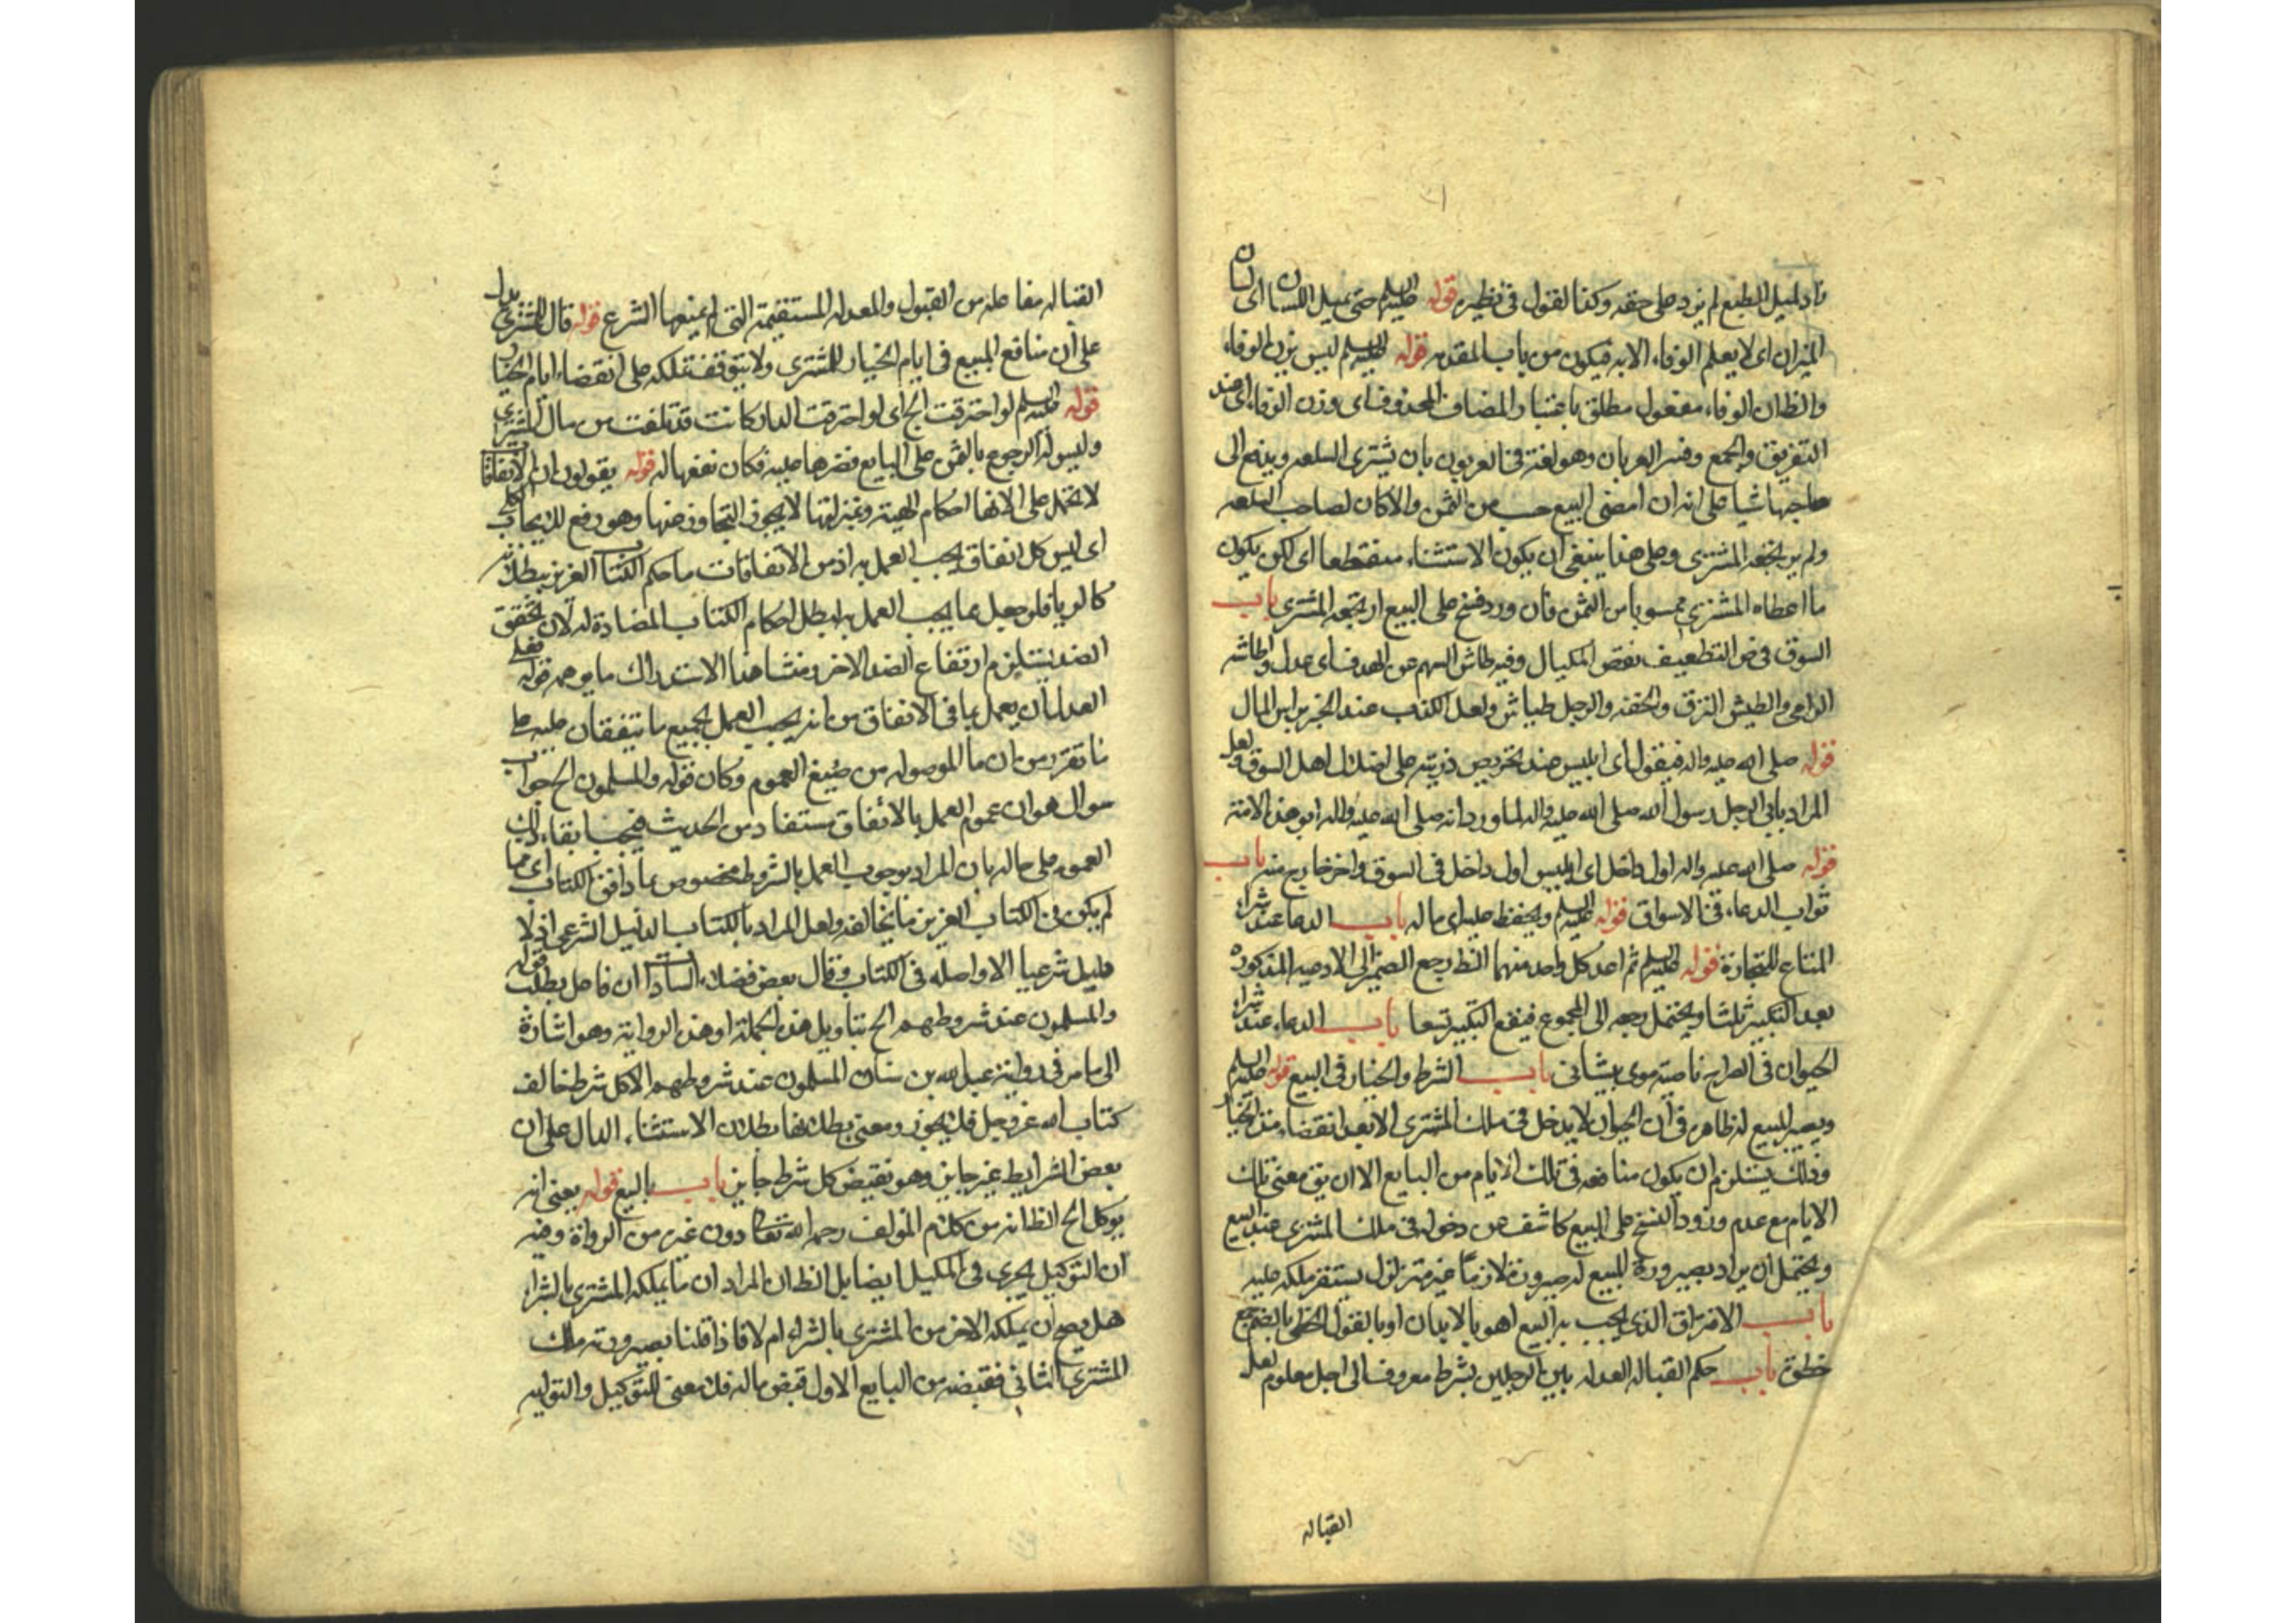 زاد لميل الطبع لم يزد على حقه وكذا القول فى نظيره قوله عليه السلم حتى يميل اللسان اى لسان
الميزان اى لا يعلم الوفاء الا به فيكون من باب المقدمه قوله عليه السلم ليس بزن الوفاء
والظ ان الوفاء مفعول مطلق باعتبار المضاف المحذوف اى وزن الوفاء اى ضد
التفريق والجمع وفسر العربان وهو لغة فى العربون بان يشترى السلعه ويدفع الى
صاحبها شيا على انه ان امضى البيع حسب من الثمن والا كان لصاحب السلعه
ولم يرتجعه المشترى وعلى هذا ينبغى ان يكون الاستثناء منقطعا اى لكن يكون
ما اعطاه المشترى محسوبا من الثمن فان ورد فسخ على البيع ارتجعه المشترى باب
السوق فى ض التطفيف نقص المكيال وفيه طاش السهم عن الهدف اى عدل واطاشه
الرامى والطيش النزق والخفه والرجل طياش ولعل الكذب عند الخبر براس المال
قوله صلى الله عليه واله فيقول اى ابليس عند تحريص ذريته على اضلال اهل السوق ولعل
المراد بابى الرجل رسول الله صلى الله عليه واله لما ورد انه صلى الله عليه واله ابو هذه الامة
قوله صلى الله عليه واله اول داخل اى ابليس اول داخل فى السوق واخر خارج منه باب
ثواب الدعاء فى الاسواق قوله عليه السلم ويحفظ عليه اى ماله باب الدعا عند شراء
المتاع للتجارة قوله عليه السلم ثم اعد كل واحد منهما الظ رجع الضمير الى الادعيه المذكوره
بعد التكبير ثلثا ويحتمل رجعه الى المجموع فيقع التكبير تسعا باب الدعاء عند شراء
الحيوان فى الصراح ناصيه موى پيشانى باب الشرط والخيار فى البيع قوله عليه السلم
ويصير المبيع له ظاهره فى ان الحيوان لا يدخل فى ملك المشترى الا بعد انقضاء مدة الخيار
وذلك يستلزم ان يكون منافعه فى تلك الايام من البايع الا ان يق معنى تلك
الايام مع عدم ورود الفسخ على المبيع كاشف عن دخوله فى ملك المشترى عند البيع
ويحتمل ان يراد بصيرورة المبيع له صيرورته لازما غير متزلزل يستقر ملكه عليه
باب الافتراق الذى يجب به البيع اهو بالابدان او بالقول الخطى بالضم جمع
خطوة باب حكم القباله العدله بين الرجلين بشرط معروف الى اجل معلوم لعل
القباله
القباله مفاعله من القبول والمعدله المستقيمة التى لم يمنعها الشرع قوله قال للمشترى يدل
على ان منافع المبيع فى ايام الخيار للمشترى ولا يتوقف تملكه على انقضاء ايام الخيار
قوله عليه السلم لو احترقت الخ اى لو احترقت الدار كانت قد تلفت من مال المشترى
وليس له الرجوع بالثمن على البايع فضررها عليه فكان نفعها له قوله يقولون ان الاتفاقات
لا تحمل على الانها احكام الهية وبمنزلتها لا يجوز التجاوز عنها وهو رفع للايجاب الكلى
اى ليس كل اتفاق يجب العمل به اذ من الاتفاقات ما حكم الكتاب العزيز ببطلانه
كالربا فلو جعل مما يجب العمل به ابطل احكام الكتاب المضادة له لان تحقق
الضد يستلزم ارتفاع الضد الاخر ومنشا هذا الاستدراك ما يوهمه قوله فعلى
العدل ان يعمل بما فى الاتفاق من انه يجب العمل بجميع ما يتفقان عليه على
ما تقرر من ان ما الموصوله من صيغ العموم وكان قوله والمسلمون الخ جواب
سوال هو ان عموم العمل بالاتفاق مستفاد من الحديث فيجب ابقاء ذلك
العموم على حاله بان المراد بوجوب العمل بالشروط مخصوص بما وافق الكتاب اى مما
لم يكن فى الكتاب العزيز ما يخالفه ولعل المراد بالكتاب الدليل الشرعى اذ لا
دليل شرعيا الا واصله فى الكتاب وقال بعض فضلاء السادات ان فاعل بطلت قوله
والمسلمون عند شروطهم الخ بتاويل هذه الجملة او هذه الرواية وهو اشارة
الى ما مر فى رواية عبد الله بن سنان المسلمون عند شروطهم الا كل شرط خالف
كتاب الله عز وجل فلا يجوز ومعنى بطلانها بطلان الاستثناء الدال على ان
بعض الشرايط غير جايز وهو نقيض كل شرط جايز باب البيع قوله يعنى انه
يوكل الخ الظ انه من كلام المؤلف رحمه الله تعالى دون غيره من الرواة وفيه
ان التوكيل يجرى فى المكيل ايضا بل الظ ان المراد ان ما يملكه المشترى بالشراء
هل يصح ان يملكه الاخر من المشترى بالشراء ام لا فاذا قلنا بصيرورته ملك
المشترى الثانى فقبضه من البايع الاول قبض ماله فلا معنى للتوكيل والتوليه